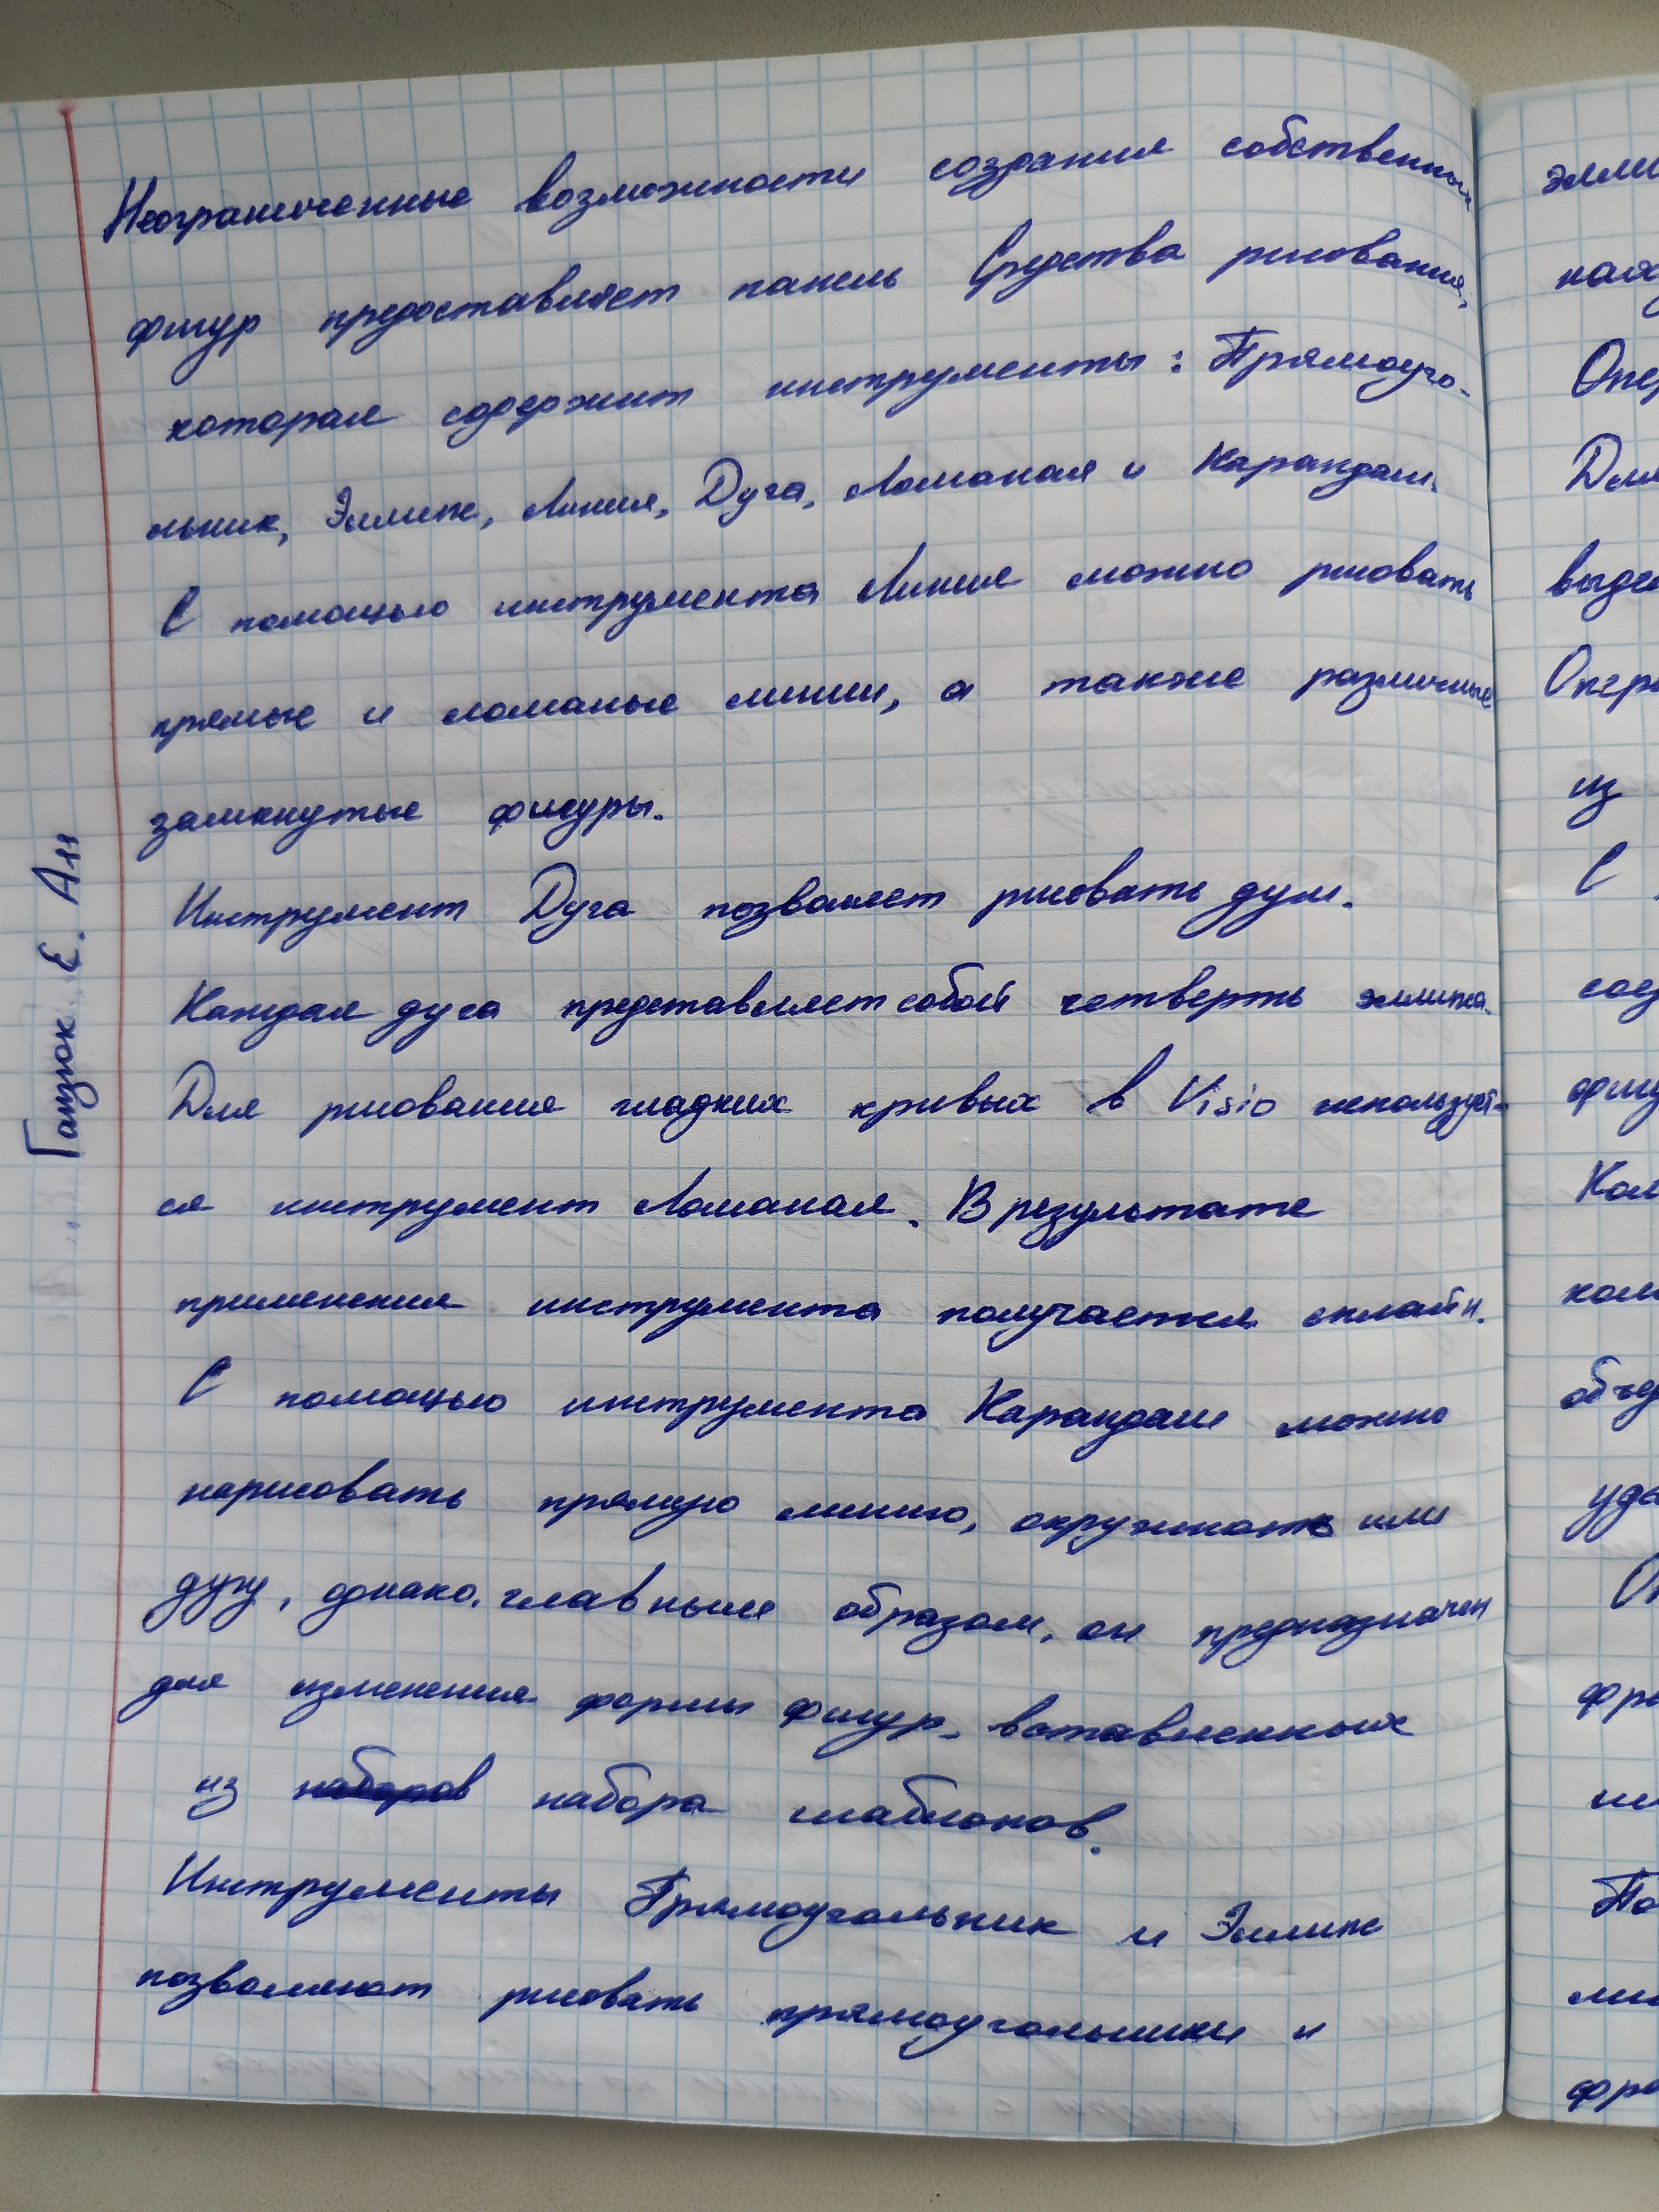 Неограниченные возможности создания собственных
фигур предоставляет панель Средства рисования,
которая содержит инструменты: Прямоуго-
льник, Эллипс, Линия, Дуга, Ломаная и Карандаш.
С помощью инструмента Линия можно рисовать
прямые и ломаные линии, а также различные
замкнутые фигуры.
Инструмент Дуга позволяет рисовать дуги.
Каждая дуга представляет собой четверть эллипса.
Для рисования гладких кривых в Visio использует-
ся инструмент Ломаная. В результате
применения инструмента получается сплайн.
С помощью инструмента Карандаш можно
нарисовать прямую линию, окружность или
дугу, однако, главным образом, он предназначен
для изменения формы фигур, вставленных
из наборов набора шаблонов.
Инструменты Прямоугольник и Эллипс
позволяют рисовать прямоугольники и
Гапзюк. Е. Ан
элли
Опер
Для
выде
Опер
из
С
соед
фигу
Ком
ком
объед
уда
фра
По
фра